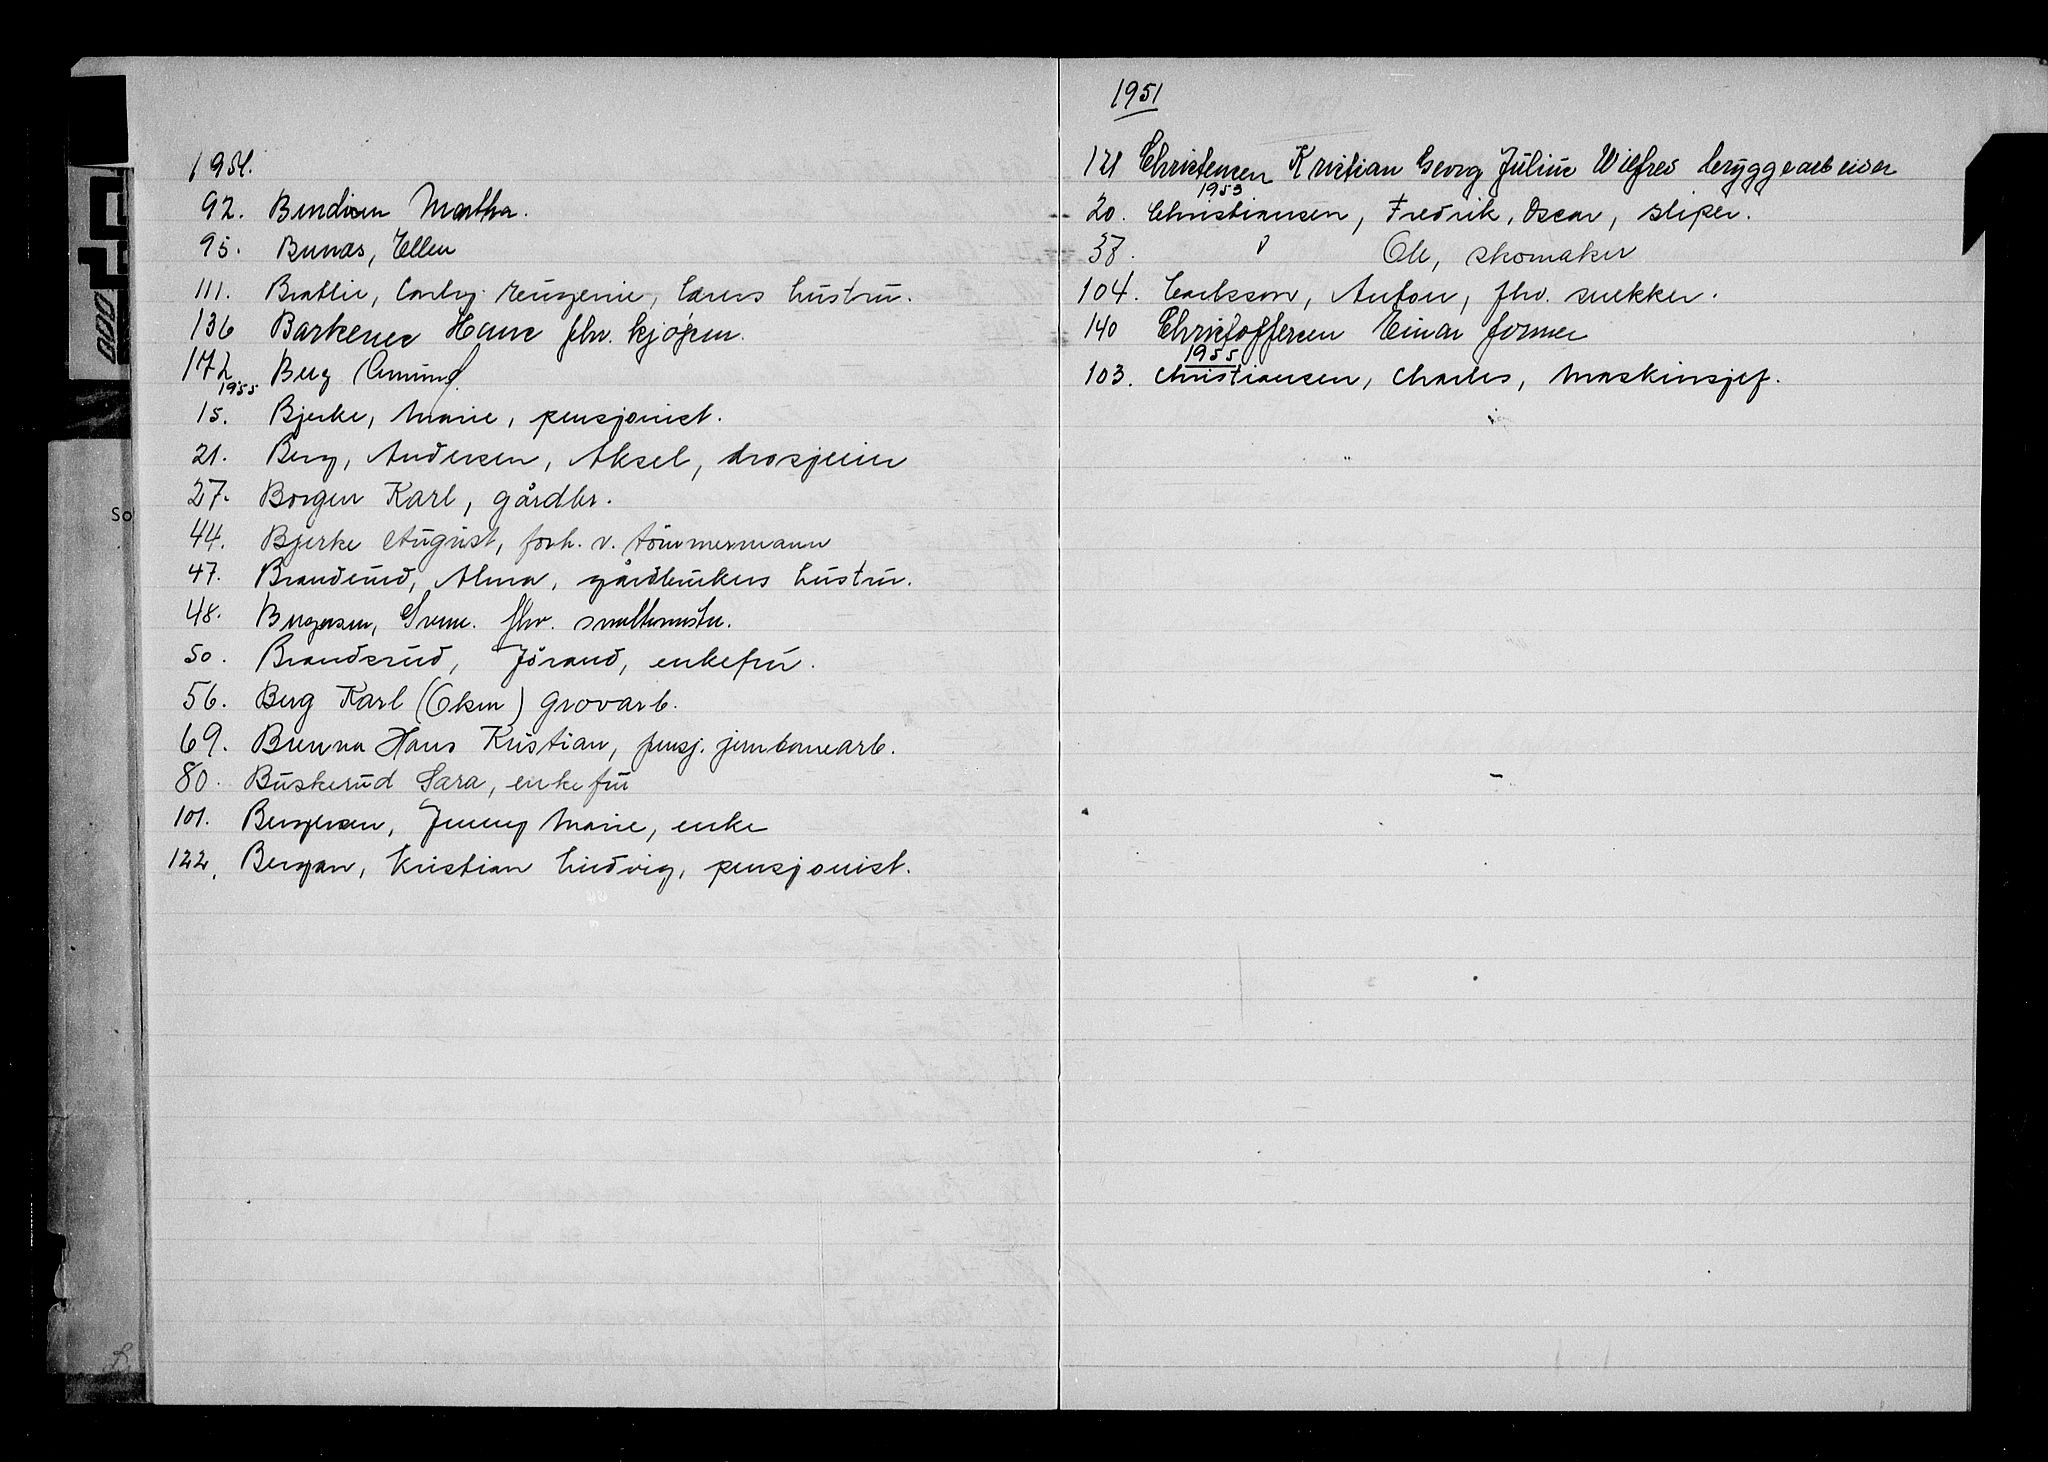 1954.
92. Bendixen Martha.
95. Bunæs, Ellen
111. Bratlie, Eugenie, lærers hustru.
136 Barkenes Hans fhv. kjøpm.
172. Berg Amund.
1955
15. Bjerke, Marie, pensjonist.
21. Berg, Andersen, Aksel, drosjeeier
27. Borgen Karl, gårdbr.
44. Bjerke August, forh. v. tömmermann
47. Brandsrud, Alma, gårdbrukers hustru.
48. Bergersen, fhv. smeltemester.
50. Brandsrud, Jörand, enkefru.
56. Berg Karl (Eken) grovarb.
69. Brenna Hans Kristian, pensj. jernbanearb.
80. Buskerud Sara, enkefru
101. Bergersen, Jenny Marie, enke
122. Bergan, Kristian Ludvig, pensjonist.
1951
121 Christensen Kristian Georg Julius Wilfred bryggearbeider
1953
20. Christiansen, Fredrik, Oscar, sliper.
38. " Ole, skomaker
104. Carlsson, Anton, fhv. snekker.
140 Christoffersen Einar former
1955
103. Christiansen, Charles, maskinsjef.